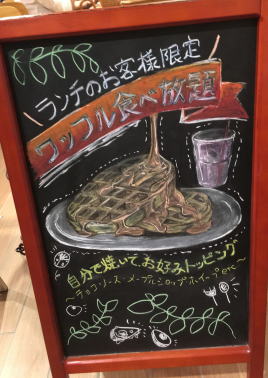 ランチのお客様限定
ワッフル食べ放題
自分で焼いて、お好みトッピング
～チョコソース・メープルシロップ・ホイップetc～